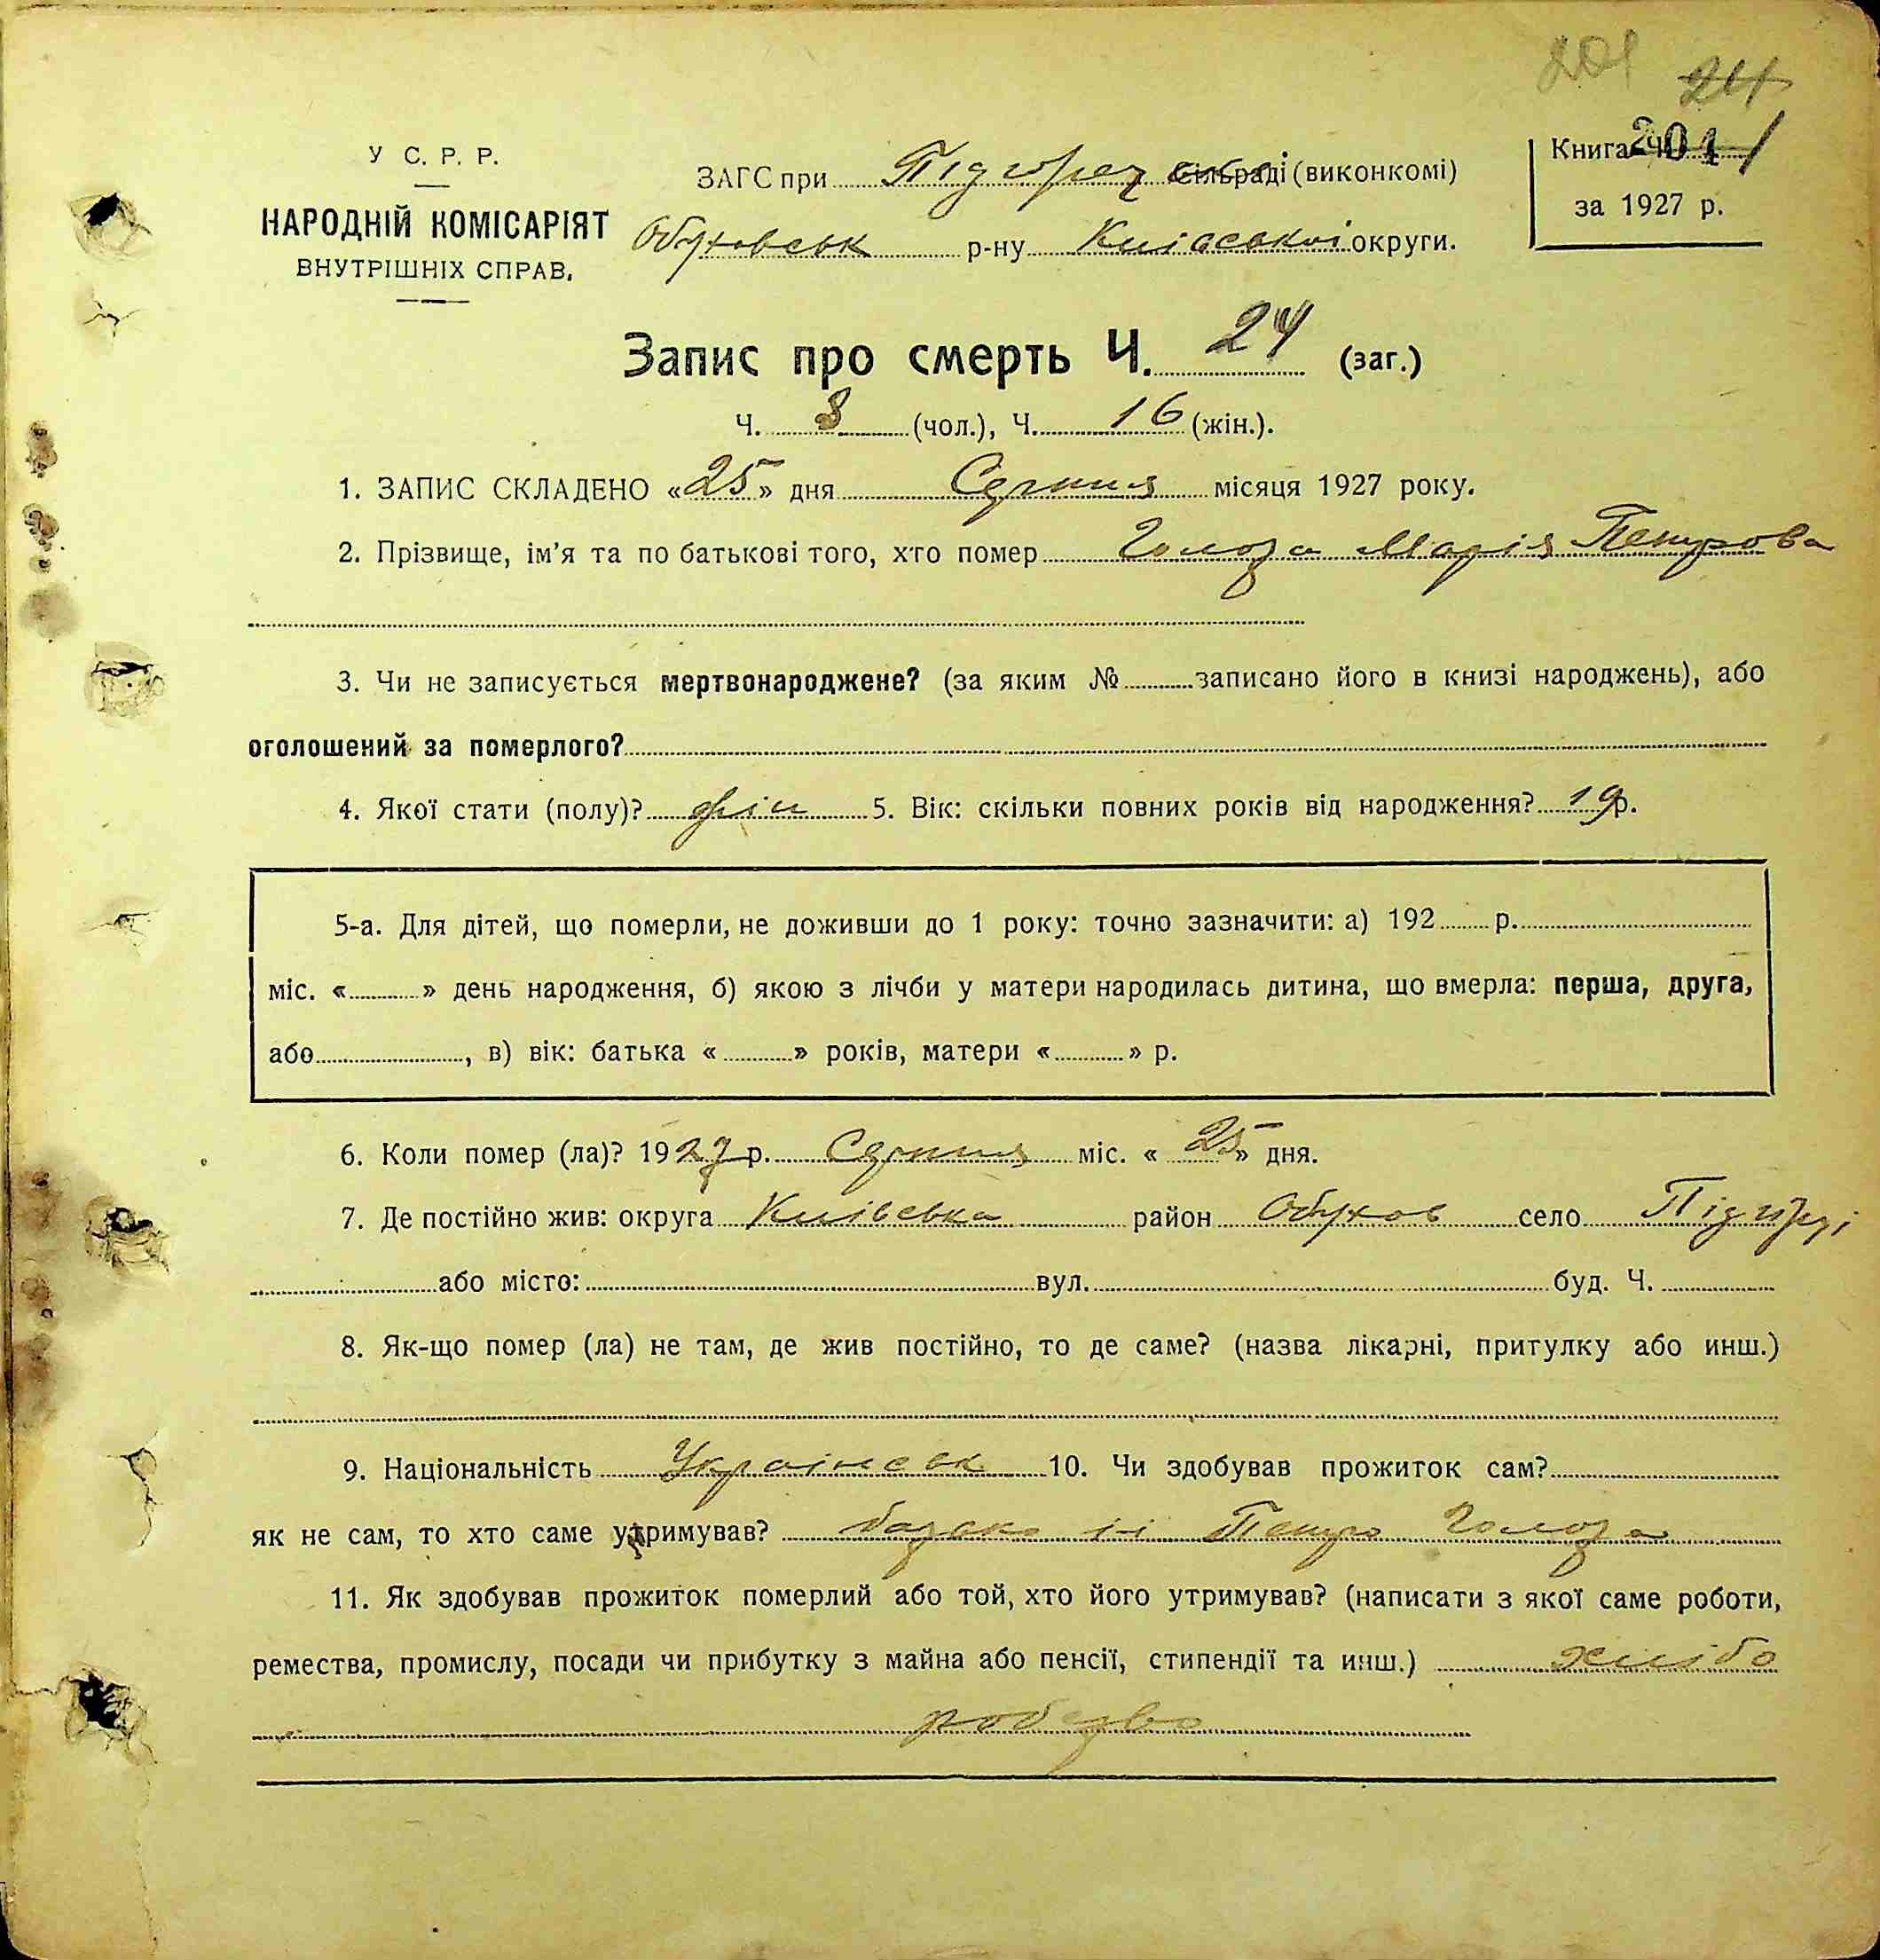 201 24
У С. Р. Р.
НАРОДНІЙ КОМІСАРІЯТ
ВНУТРІШНІХ СПРАВ.
ЗАГС при Підгорец сільраді (виконкомі)
Обуховськ р-ну Київської округи.
Книга Ч. 1
201
за 1927 р.
Запис про смерть Ч. 24 (заг.)
Ч. 8 (чол.), Ч. 16 (жін.).
1. ЗАПИС СКЛАДЕНО «25» дня Серпня місяця 1927 року.
2. Прізвище, ім’я та по батькові того, хто помер Голоза Марія Петрова
3. Чи не записується мертвонароджене? (за яким № записано його в книзі народжень), або
оголошений за померлого?
4. Якої стати (полу)? жін 5. Вік: скільки повних років від народження? 19 р.
5-а. Для дітей, що померли, не доживши до 1 року: точно зазначити: а) 192 р.
міс. « » день народження, б) якою з лічби у матери народилась дитина, що вмерла: перша, друга,
або , в) вік: батька « » років, матери « » р.
6. Коли помер (ла)? 1927 р. Серпня міс. « 25 » дня.
7. Де постійно жив: округа Київська район Обухов село Підгірці
або місто: вул. буд. Ч.
8. Як-що помер (ла) не там, де жив постійно, то де саме? (назва лікарні, притулку або инш.)
9. Національність Українськ 10. Чи здобував прожиток сам?
як не сам, то хто саме утримував? її Петро Голоза
11. Як здобував прожиток померлий або той, хто його утримував? (написати з якої саме роботи,
ремества, промислу, посади чи прибутку з майна або пенсії, стипендії та инш.) хлібо
робство